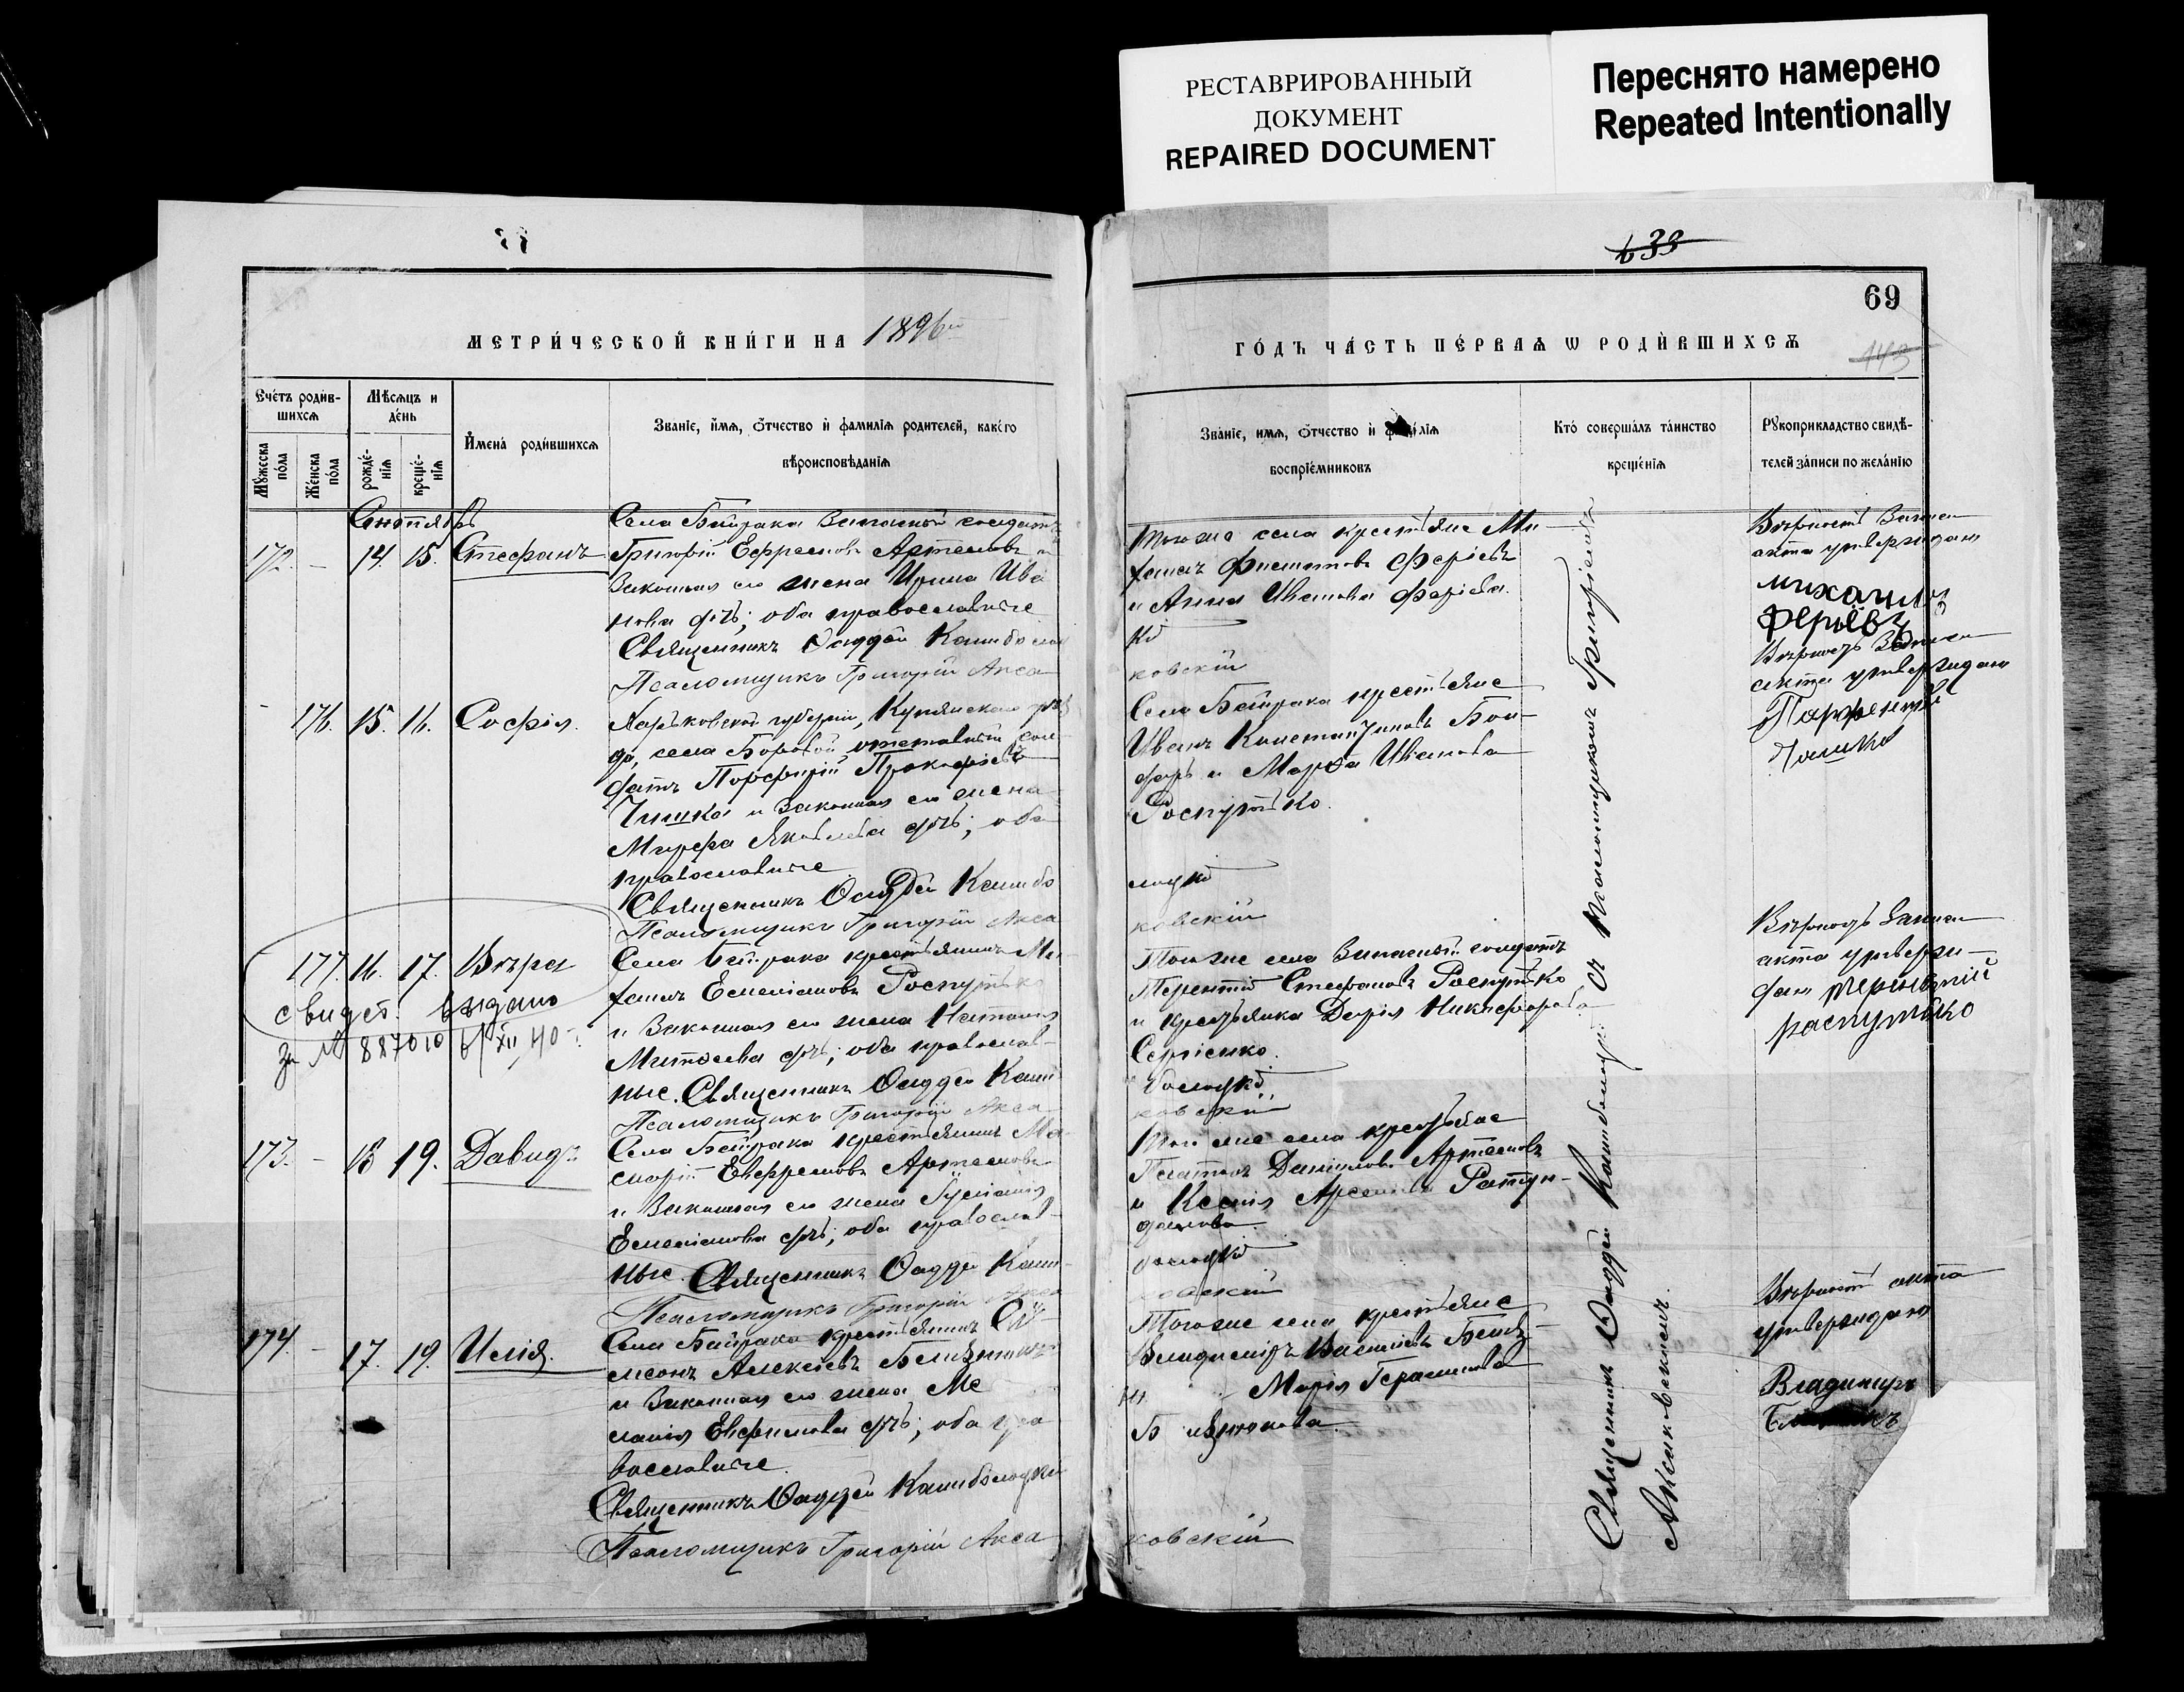 РЕСТАВРИРОВАННЫЙ
ДОКУМЕНТ
REPAIRED DOCUMENT
Переснято намерено
Repeated Intentionally
633
69
143
МЕТРИ́ЧЕСКОЙ КНИ́ГИ НА 1896
ГО́ДЪ ЧА́СТЬ ПЕ́РВАѦ Ѡ РОДИ́ВШИХСѦ
Сче́тъ роди́в-
шихсѧ
Мꙋ́жеска
по́ла
Же́нска
по́ла
Мѣ́сѧцъ и
де́нь
рожде́-
нїѧ
креще́-
нїѧ
Имена́ роди́вшихсѧ
Зва́нїе, и́мѧ, ѻ́тчество и̑ фами́лїѧ роди́телей, како́го
вѣроисповѣ́данїѧ
Зва́нїе, имѧ, ѻ́тчество и̑ фами́лїѧ
воспрїе́мниковъ
Кто́ соверша́лъ та́инство
креще́нїѧ
Рꙋкоприкла́дство свидѣ́-
телей за́писи по жела́нїю
Сентябрь
172. – 14. 15. Стефанъ
Села Байрака Запасный солдатъ
Григорій Ефремовъ Артемовъ и
Законная его жена Ирина Ива
нова дочь; оба православные
Священникъ Фаддей Камбо
Псаломщикъ Григорій Акса
Того же села крестьяне Ми
хаилъ Филиповъ Ферієвъ
и Анна Иванова Ферієва.
ковскій
Вѣрность Записи
акта утверждаю
михаилъ
Ферієвъ
- 176. 15. 16. Софія.
Харьковской губерніи, Купянскаго уѣз
да, села Боровой отставный сол
датъ Порфирій Прокофіевъ
Чишка и Законная его жена
Марфа Яковлева дочь; оба
православные
Священникъ Фаддей Камбо
Псаломщикъ Григорій Акса
Села Байрака крестьяне
Иванъ Константиновъ Бон-
дарь и Марфа Иванова
Роспутько.
ковскій
Вѣрность Записи
акта утверждаю
177. 16. 17. Вѣра
свидет. выдано
за № 887010 6/XII 40
Села Байрака крестьянинъ Ми
хаилъ Емеліановъ Роспутько
и Законная его жена Наталія
Матвѣева дочь; оба православ-
ные. Священникъ Фаддей Кам
Псаломщикъ Григорій Акса
Того же села Запасный солдатъ
Терентій Стефановъ Роспутько
и крестьянка Дарія Никифорова
Сергіенко.
ковскій
Вѣрность Записи
акта утверж-
даю терентій
распутько
173. – 18 19. Давидъ
Села Байрака крестьянинъ
Евфремовъ Артемовъ
и Законная его жена
Емеліанова дочь; оба православ-
ные. Священникъ Фаддей Кам-
Псаломщикъ Григорій Акса
Той же села крестьяне
Платонъ Даніиловъ Артемовъ
и Ксенія
ковскій
174. – 17. 19. Илія.
Села Байрака крестьянинъ Си
меонъ Алексіевъ
и Законная его жена Ме
ланія Евфимова дочь; оба пра
вославные.
Священникъ Фаддей Камболоцкій
Псаломщикъ Григорій Акса
Того же села крестьяне
Владиміръ Василіевъ
Марія Герасимова
ковскій
Вѣрность акта
утверждаю
Владимиръ
Священникъ Фаддей Камболоцкій съ Псаломщикомъ Григоріемъ
Аксаковскимъ.